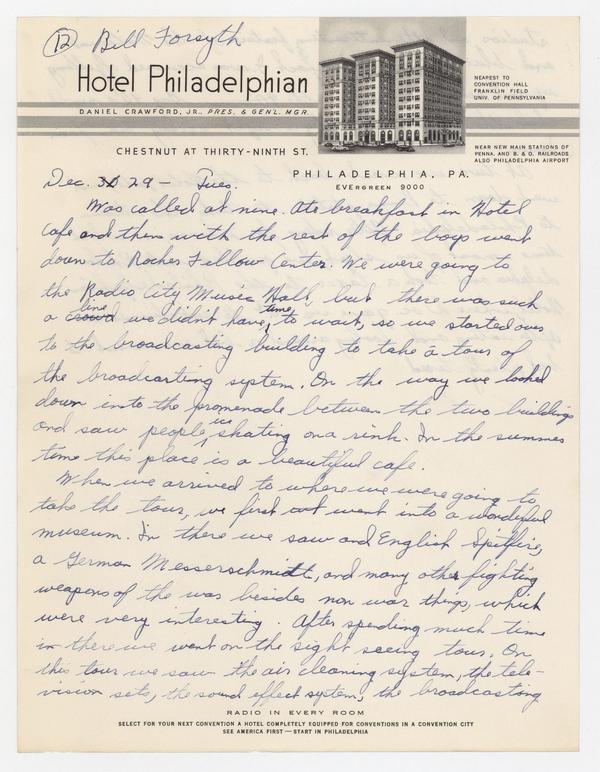 12 Bill Forsyth
Hotel Philadelphian
DANIEL CRAWFORD, JR., PRES. & GENL. MGR.
NEAREST TO
CONVENTION HALL
FRANKLIN FIELD
UNIV. OF PENNSYLVANIA
CHESTNUT AT THIRTY-NINTH ST.
NEAR NEW MAIN STATIONS OF
PENNA. AND B. & O. RAILROADS
ALSO PHILADELPHIA AIRPORT
PHILADELPHIA, PA.
EVERGREEN 9000
Dec. 30 29 - Tues.
Was called at nine. Ate breakfast in Hotel
Cafe and then with the rest of the boys went
down to Rocher Fellow Center. We were going to
the Radio City Music Hall, but there was such
a crowd line we didn't have time, to wait, so we started over
to the broadcasting building to take a tour of
the broadcasting system. On the way we looked
down into the promenade between the two buildings
and saw people ice skating on a rink. In the summer
time this place is a beautiful cafe.
When we arrived to where we were going to
take the tour, we first out went into a wonderful
museum. In there we saw and English Spitfire,
a German Messerschmidt, and many other fighting
weapons of the war besides non war things, which
were very interesting. After spending much time
in there we went on the sight seeing tour. On
this tour we saw the air cleaning system, the tele-
vision sets, the sound effect system, the broadcasting
RADIO IN EVERY ROOM
SELECT FOR YOUR NEXT CONVENTION A HOTEL COMPLETELY EQUIPPED FOR CONVENTIONS IN A CONVENTION CITY
SEE AMERICA FIRST — START IN PHILADELPHIA